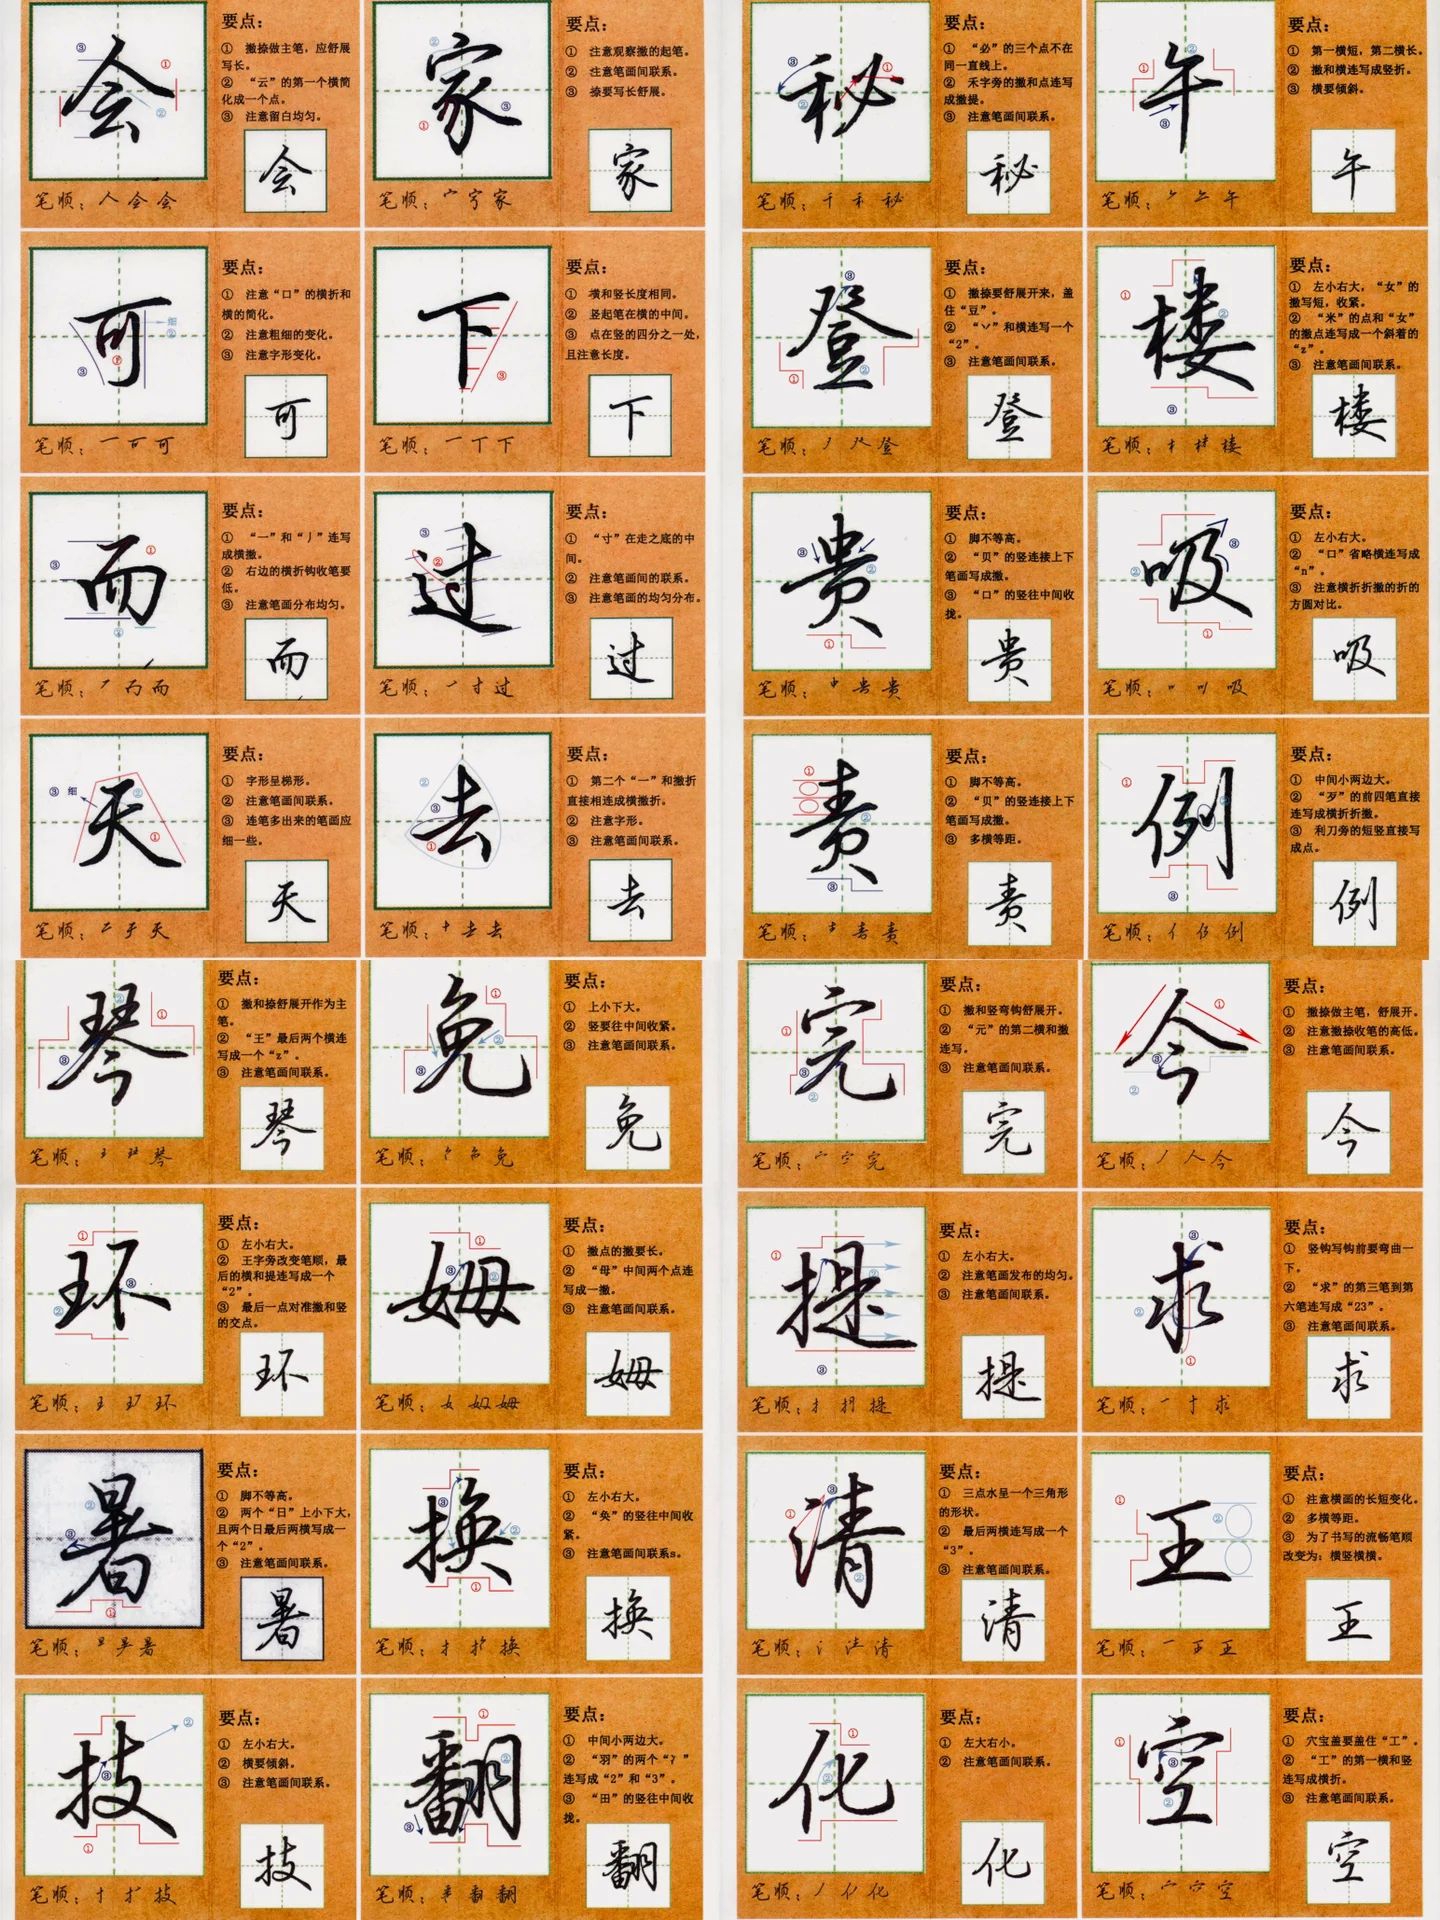 会
要点：
① 撇捺做主笔，应舒展
写长。
② “云”的第一个横简
化成一个点。
③ 注意留白均匀。
会
笔顺：人 仝 会
家
要点：
① 注意观察撇的起笔。
② 注意笔画间联系。
③ 捺要写长舒展。
家
笔顺：宀 家
秘
要点：
① “必”的三个点不在
同一直线上。
② 禾字旁的撇和点连写
成撇提。
③ 注意笔画间联系。
秘
笔顺：千 禾 秘
午
要点：
① 第一横短，第二横长。
② 撇和横连写成竖折。
③ 横要倾斜。
午
笔顺：午
可
要点：
① 注意“口”的横折和
横的简化。
② 注意粗细的变化。
③ 注意字形变化。
细
可
笔顺：一 可 可
下
要点：
① 横和竖长度相同。
② 竖起笔在横的中间。
③ 点在竖的四分之一处，
且注意长度。
下
笔顺：一 丅 下
登
要点：
① 撇捺要舒展开来，盖
住“豆”。
② “丷”和横连写一个
“2”。
③ 注意笔画间联系。
登
笔顺：丿 癶 登
楼
要点：
① 左小右大，“女”的
撇写短，收紧。
② “米”的点和“女”
的撇点连写成一个斜着的
“z”。
③ 注意笔画间联系。
楼
笔顺：木 楼
而
要点：
① “一”和“丿”连写
成横撇。
② 右边的横折钩收笔要
低。
③ 注意笔画分布均匀。
而
笔顺：而
过
要点：
① “寸”在走之底的中
间。
② 注意笔画间的联系。
③ 注意笔画的均匀分布。
过
笔顺：一 寸 过
贵
要点：
① 脚不等高。
② “贝”的竖连接上下
笔画写成撇。
③ “口”的竖往中间收
拢。
贵
笔顺：中 贵
吸
要点：
① 左小右大。
② “口”省略横连写成
“n”。
③ 注意横折折撇的折的
方圆对比。
吸
笔顺：吸
天
要点：
① 字形呈梯形。
② 注意笔画间联系。
③ 连笔多出来的笔画应
细一些。
细
天
笔顺：二 于 天
去
要点：
① 第二个“一”和撇折
直接相连成横撇折。
② 注意字形。
③ 注意笔画间联系。
去
笔顺：十 去 去
责
要点：
① 脚不等高。
② “贝”的竖连接上下
笔画写成撇。
③ 多横等距。
责
笔顺：责
例
要点：
① 中间小两边大。
② “歹”的前四笔直接
连写成横折折撇。
③ 利刀旁的短竖直接写
成点。
例
笔顺：亻 例
琴
要点：
① 撇和捺舒展开作为主
笔。
② “王”最后两个横连
写成一个“z”。
③ 注意笔画间联系。
琴
笔顺：王 琴
免
要点：
① 上小下大。
② 竖要往中间收紧。
③ 注意笔画间联系。
免
笔顺：免
完
要点：
① 撇和竖弯钩舒展开。
② “元”的第二横和撇
连写。
③ 注意笔画间联系。
完
笔顺：宀 完
今
要点：
① 撇捺做主笔，舒展开。
② 注意撇捺收笔的高低。
③ 注意笔画间联系。
今
笔顺：丿 人 今
环
要点：
① 左小右大。
② 王字旁改变笔顺，最
后的横和提连写成一个
“2”。
③ 最后一点对准撇和竖
的交点。
环
笔顺：王 环
姆
要点：
① 撇点的撇要长。
② “母”中间两个点连
写成一撇。
③ 注意笔画间联系。
姆
笔顺：女 姆 姆
提
要点：
① 左小右大。
② 注意笔画发布的均匀。
③ 注意笔画间联系。
提
笔顺：扌 担 提
求
要点：
① 竖钩写钩前要弯曲一
下。
② “求”的第三笔到第
六笔连写成“23”。
③ 注意笔画间联系。
求
笔顺：一 十 求
暑
要点：
① 脚不等高。
② 两个“日”上小下大，
且两个日最后两横写成一
个“2”。
③ 注意笔画间联系。
暑
笔顺：日 暑
换
要点：
① 左小右大。
② “奂”的竖往中间收
紧。
③ 注意笔画间联系s。
换
笔顺：扌 换
清
要点：
① 三点水呈一个三角形
的形状。
② 最后两横连写成一个
“3”。
③ 注意笔画间联系。
清
笔顺：氵 清
王
要点：
① 注意横画的长短变化。
② 多横等距。
③ 为了书写的流畅笔顺
改变为：横竖横横。
王
笔顺：一 王
技
要点：
① 左小右大。
② 横要倾斜。
③ 注意笔画间联系。
技
笔顺：扌 技
翻
要点：
① 中间小两边大。
② “羽”的两个“冫”
连写成“2”和“3”。
③ “田”的竖往中间收
拢。
翻
笔顺：番 翻
化
要点：
① 左大右小。
② 注意笔画间联系。
化
笔顺：丿 化 化
空
要点：
① 穴宝盖要盖住“工”。
② “工”的第一横和竖
连写成横折。
③ 注意笔画间联系。
空
笔顺：宀 空